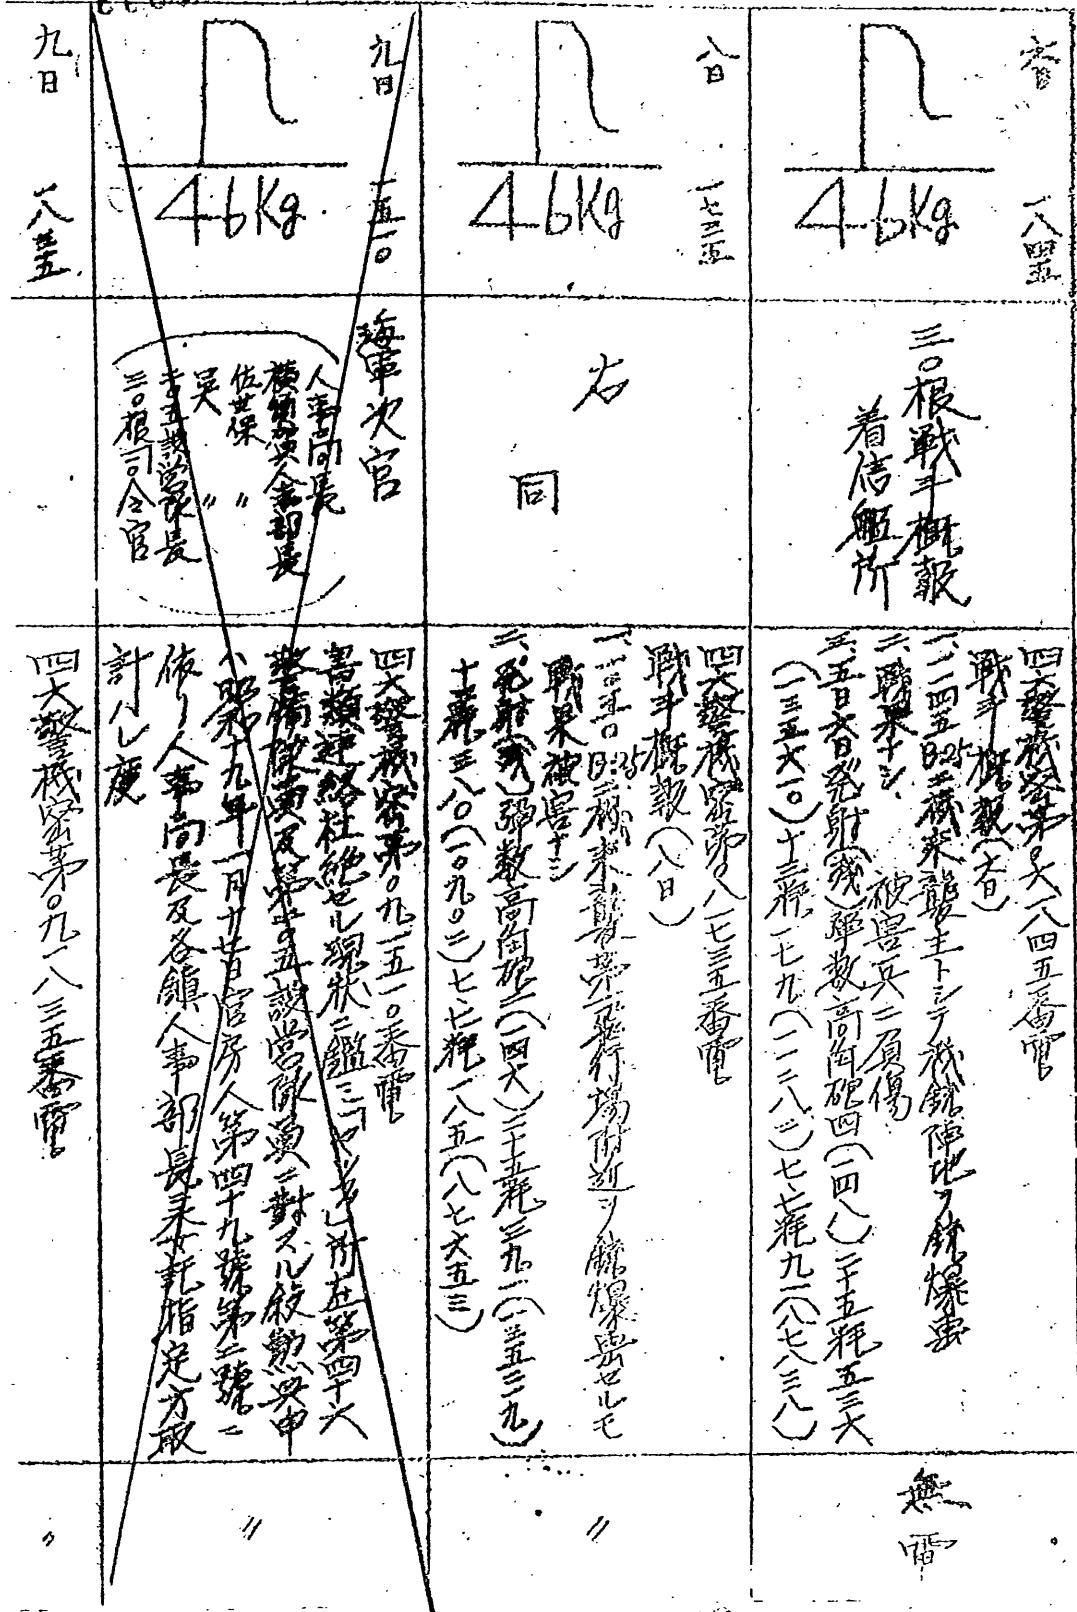 六日
一八四五
46Kg
三〇根戦斗概報
着信艦所
四六警機密第〇六一八四五番電
戦斗概報(六日)
一、一一四五B25二機来襲主トシテ機銃陣地ヲ銃爆撃
二、戦果ナシ、被害兵二負傷
三、五日六日発射(残)弾数高角砲四(一四八)二十五粍五三六
(一三五六一〇)十三粍一七九(一一二八二)七.七粍九一(八七八三八)
無電
八日
一七三五
46Kg
右
同
四六警機密第〇八一七三五番電
戦斗概報(八日)
B25二機来襲第一飛行場附近ヲ銃爆撃セルモ
戦果被害ナシ
二、発射(残)弾数高角砲二(一四六)二十五粍三九一(一三五二一九)
十三粍三八〇(一〇九〇二)七.七粍一八五(八七六五三)
〃
九日
一五一〇
46Kg
海軍次官
人事局長
横須賀人事部長
佐世保 〃
呉 〃
二〇五設営隊長
三〇根司令官
四六警機密第〇九一五一〇番電
書類連絡杜絶セル現状ニ鑑ミ「ヤップ」所在第四十六
警備隊員及第二〇五設営隊員ニ対スル叙勲具申
八昭和十九年一月廿日官房人第四十九号第二号ニ
依リ人事局長及各鎮人事部長ニ委託指定方取
計ハレ度
〃
九日
一八三五
四六警機密第〇九一八三五番電
〃